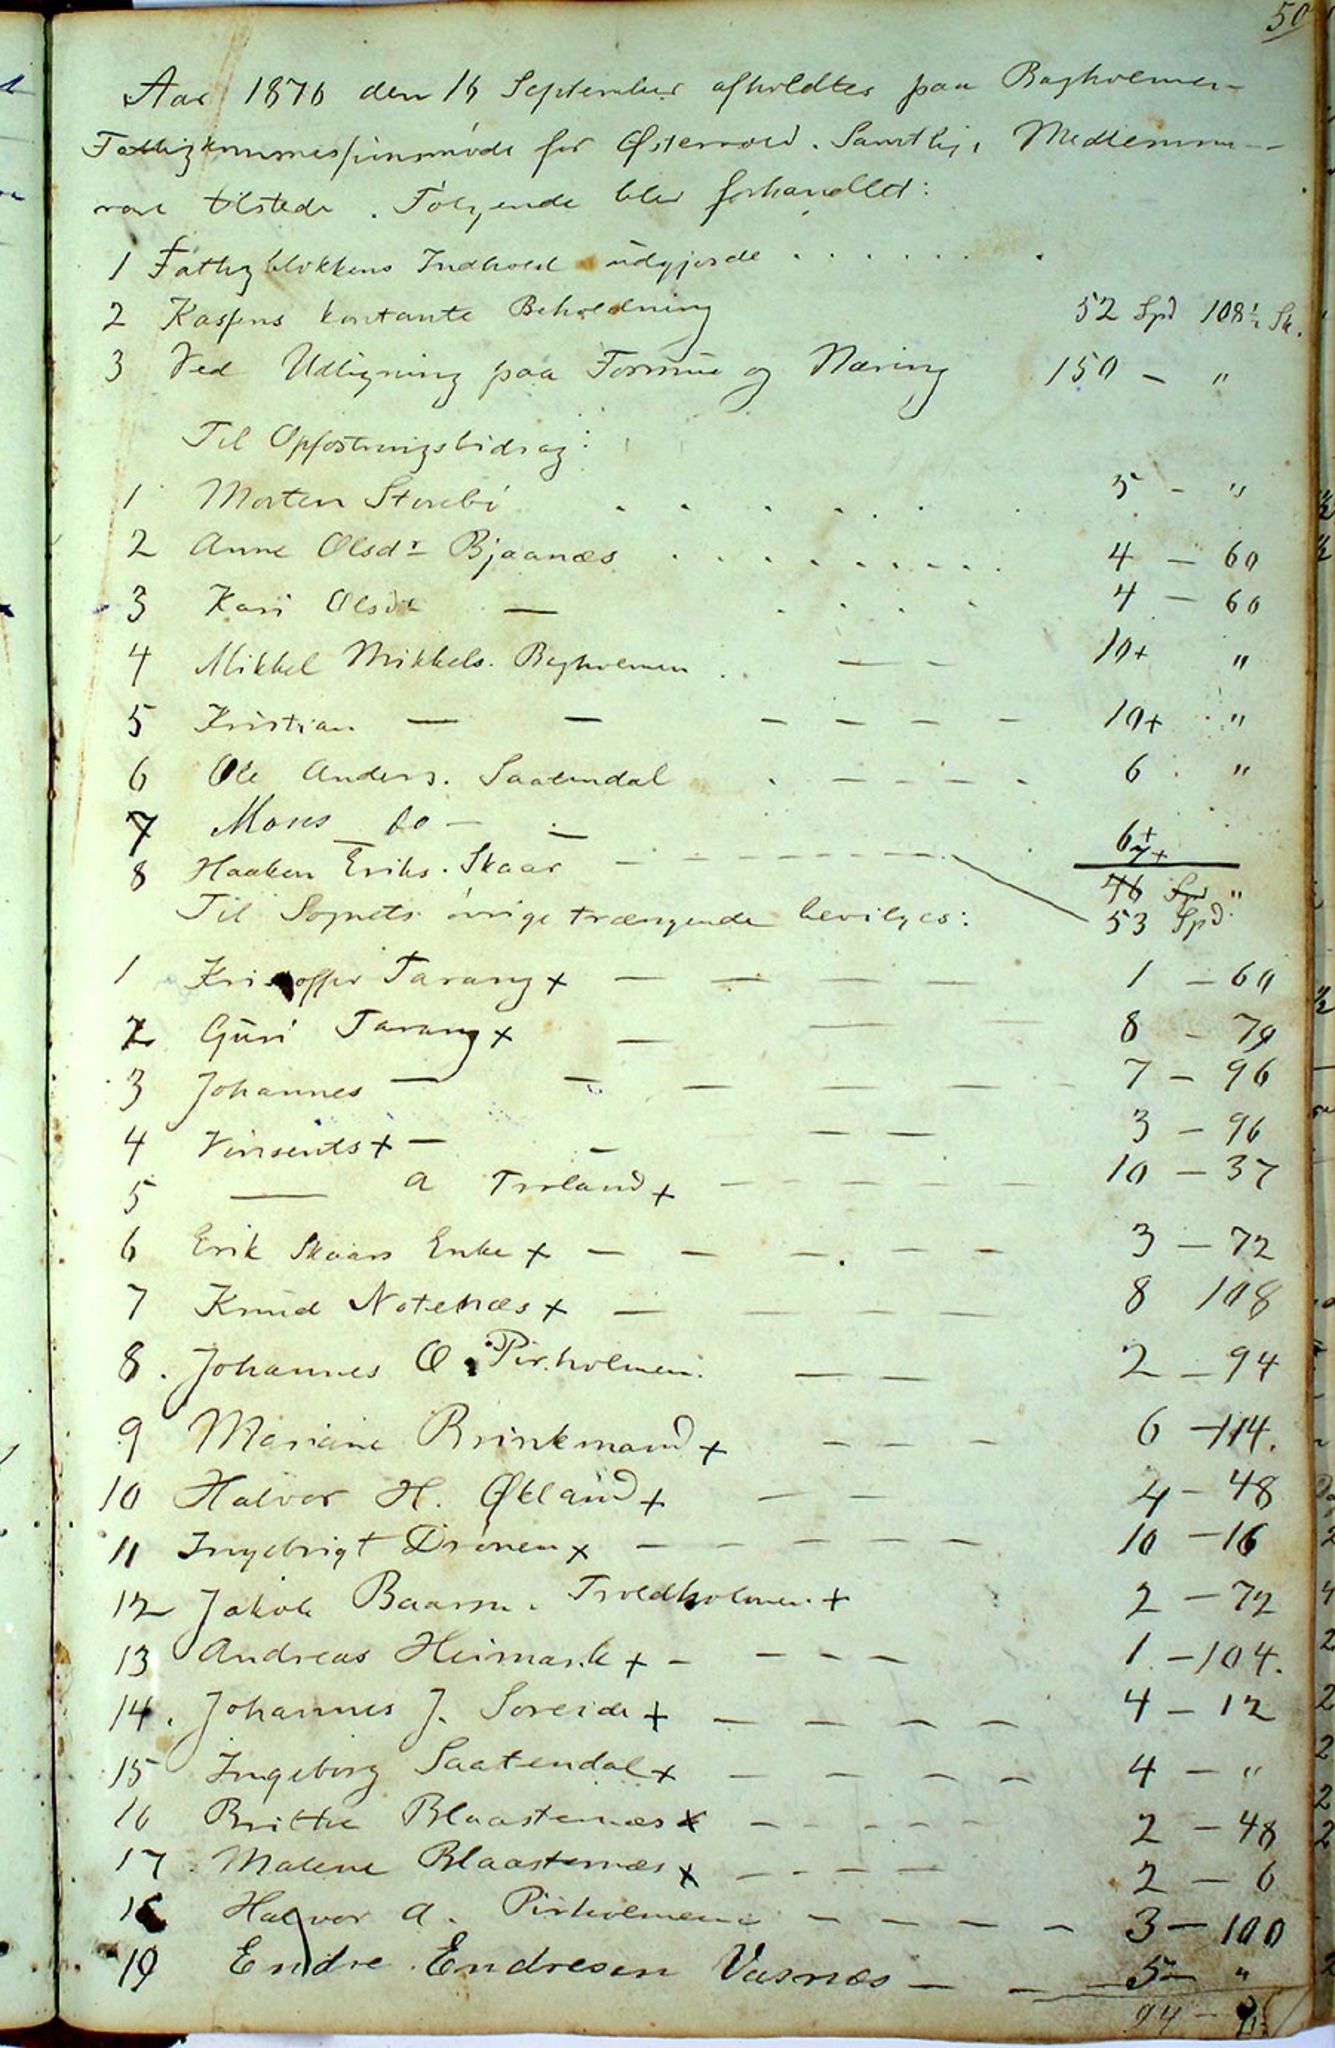 50
Aar 1876 den 16 September afholdtes paa Bagholmen
Fattigkommissionsmøde for Østervold. Samtlige Medlemmer
vare tilstede. Følgende blev forhandlet:
1 Fattigblokkens Indhold udgjorde . . . . . . .
2 Kassens kontante Beholdning 52 Spd 108½ Sk.
3 Ved Udligning paa Formue og Næring 150 - "
Til Opfostringsbidrag:
1 Morten Storebø . . . . . . . 5 - "
2 Anne Olsdr Bjaanæs . . . . . . . . . 4 - 60
3 Kari Olsdr — . . . . 4 - 60
4 Mikkel Mikkels. Bagholmen . . — — 10+ "
5 Kristian — — — — — — 10+ "
6 Ole Anders. Saatendal . — — — . 6 "
7 Moses do — — 6+
8 Haaken Eriks. Skaar — — — — — 7+
46 Spd "
Til Sognets øvrige trængende bevilges: 53 Spd
1 Kristoffer Tarang + — — — — 1 - 60
2 Guri Tarang + — — — 8 - 79
3 Johannes — — — — — 7 - 96
4 Vinsents + — — — — 3 - 96
5 — a Troland + — — — — — 10 - 37
6 Erik Skaars Enke + — — — — — 3 - 72
7 Knud Notenæs + — — — — 8 108
8. Johannes O. Pirholmen. — — 2 - 94
9 Mariane Brinkmand + — — — 6 - 114.
10 Halvor H. Økland + — — 4 - 48
11 Ingebrigt Drønen + — — — — — 10 - 16
12 Jakob Baarsn. Troldholmen + 2 - 72
13 Andreas Heimark + — — — — 1 - 104.
14. Johannes J. Søreide + — — — — 4 - 12
15 Ingeborg Saatendal + — — — — 4 - "
16 Brithe Blaastenæs + — — — — — 2 - 48
17 Malene Blaastenæs + — — — — 2 - 6
18 Halvor A. Pirholmen — — — — 3 - 100
19 Endre Endresen Vasnæs — — 5 - "
94 -